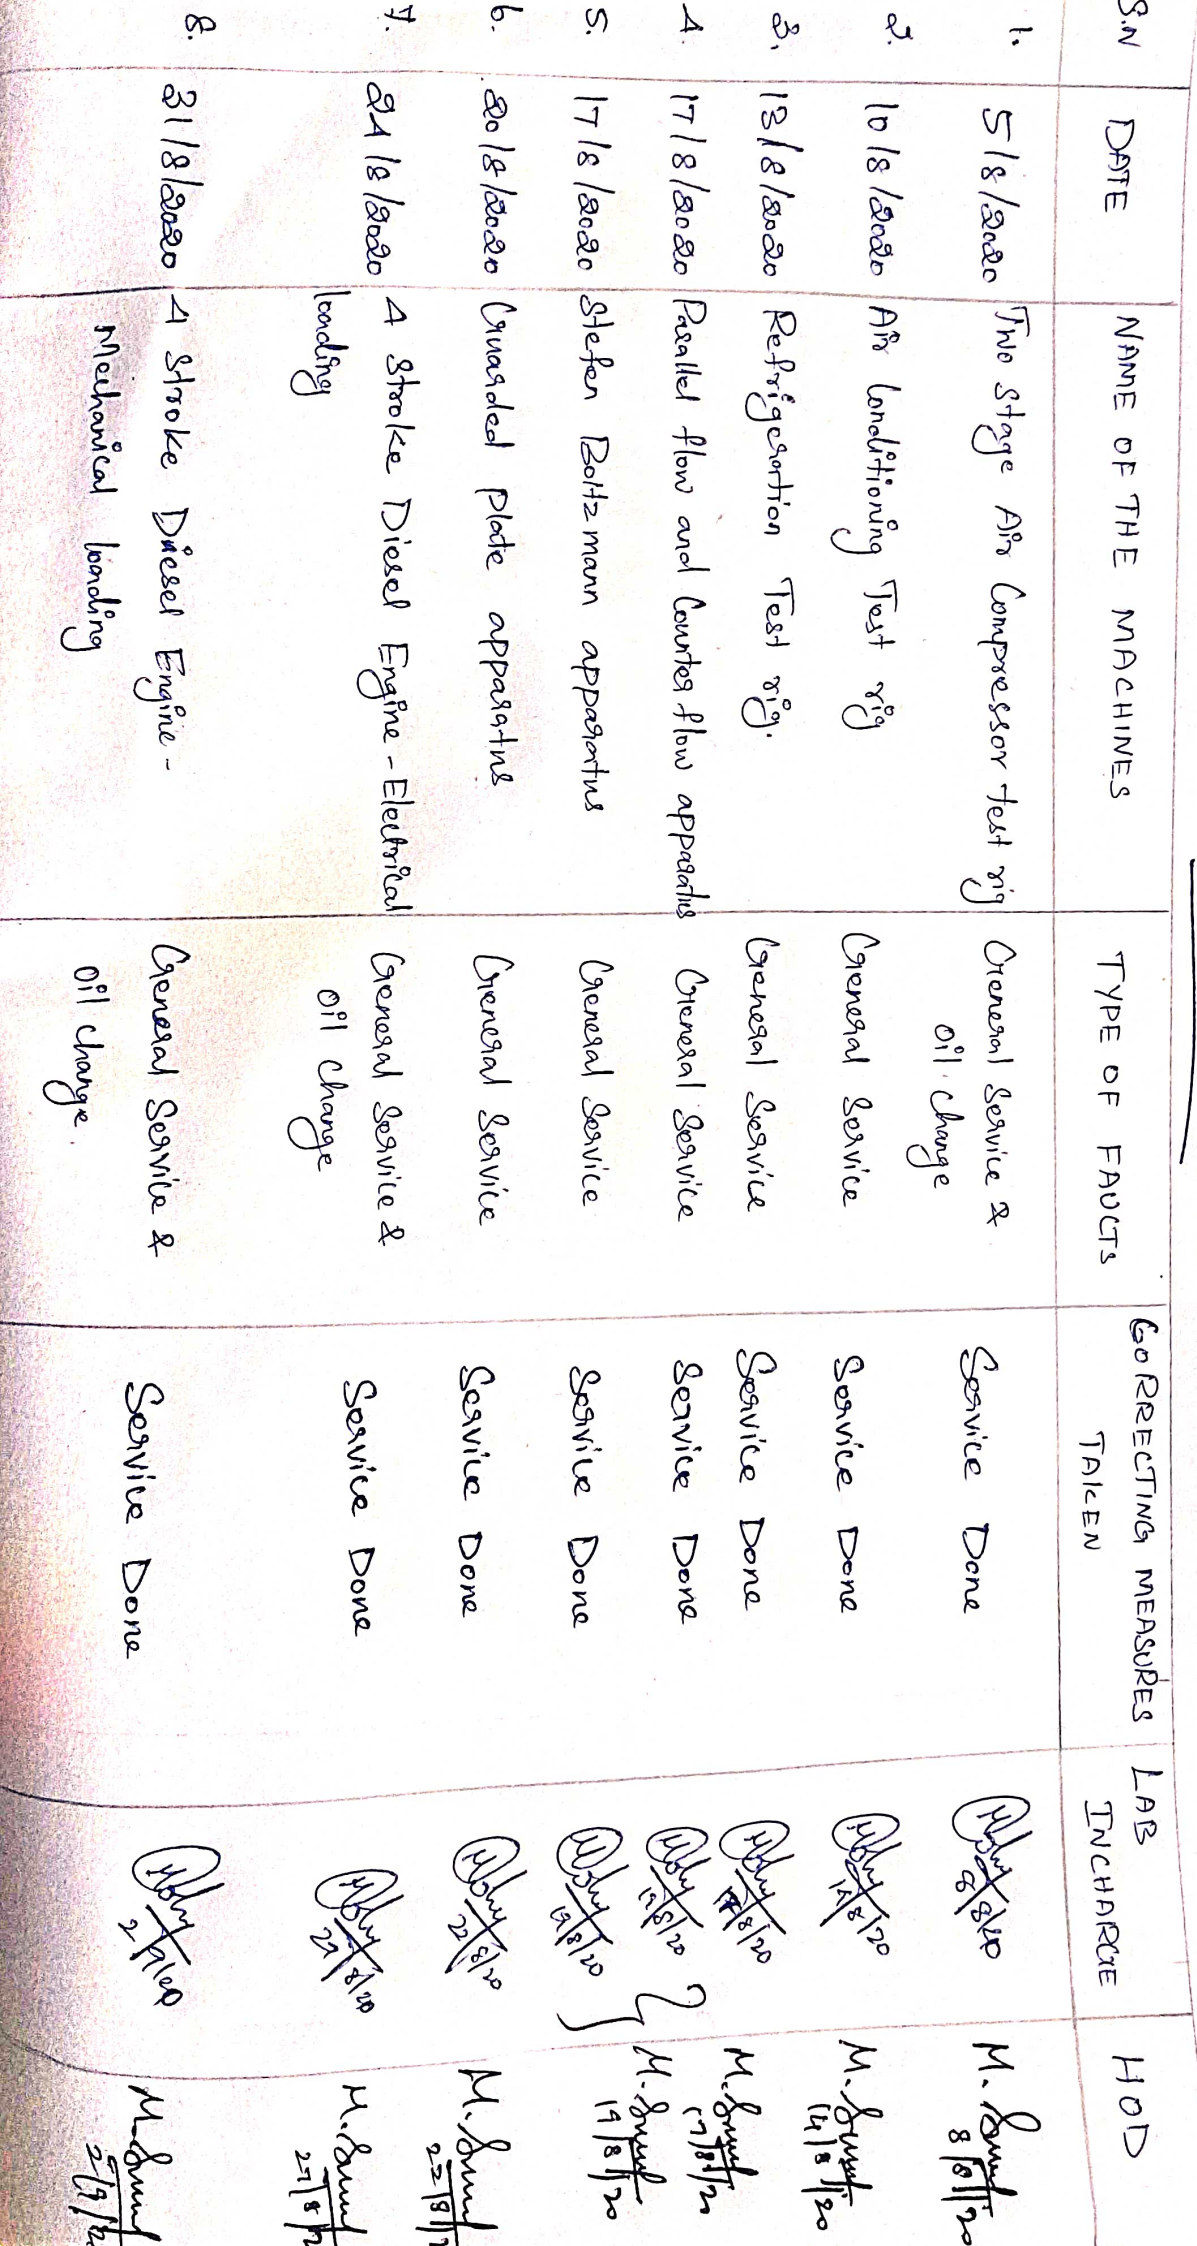 S.N DATE NAME OF THE MACHINES TYPE OF FAUCTS CORRECTING MEASURES TAKEN LAB INCHARGE HOD
1. 5/8/2020 Two Stage Air Compressor test rig General Service & oil change Service Done 8/8/20 M. 8/8/20
2. 10/8/2020 Air Conditioning Test rig General Service Service Done 14/8/20 M. 14/8/20
3. 13/8/2020 Refrigeration Test rig. General Service Service Done 17/8/20 M. 17/8/20
4. 17/8/2020 Parallel flow and Counter flow apparatus General Service Service Done 19/8/20
5. 17/8/2020 Stefen Boltzmann apparatus General Service Service Done 19/8/20 M. 19/8/20
6. 20/8/2020 Guarded plate apparatus General Service Service Done 22/8/20 M. 22/8/
7. 24/8/2020 4 Stroke Diesel Engine - Electrical General Service & Service Done 27/8/20 M. 27/8/
loading oil change
8. 31/8/2020 4 Stroke Diesel Engine - General Service & Service Done 2/9/20 M. 2/9/
Mechanical loading oil change.